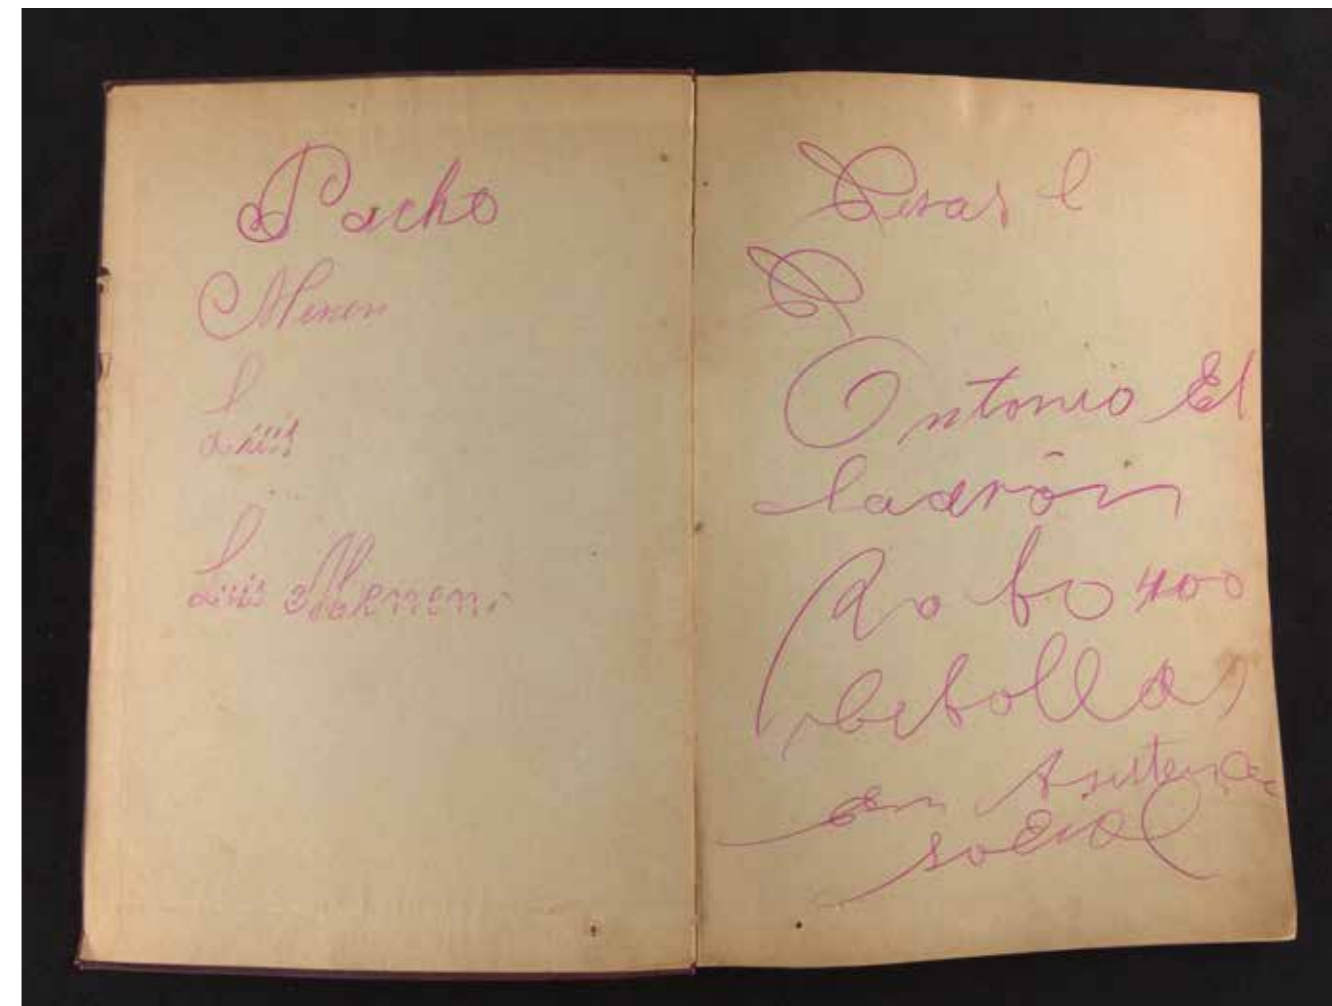 Pacho
Menen
L
Luis
Luis Menen
Cesar C
C
Antonio El
ladrón
Robo 400
cebollas
en Asistencia
social